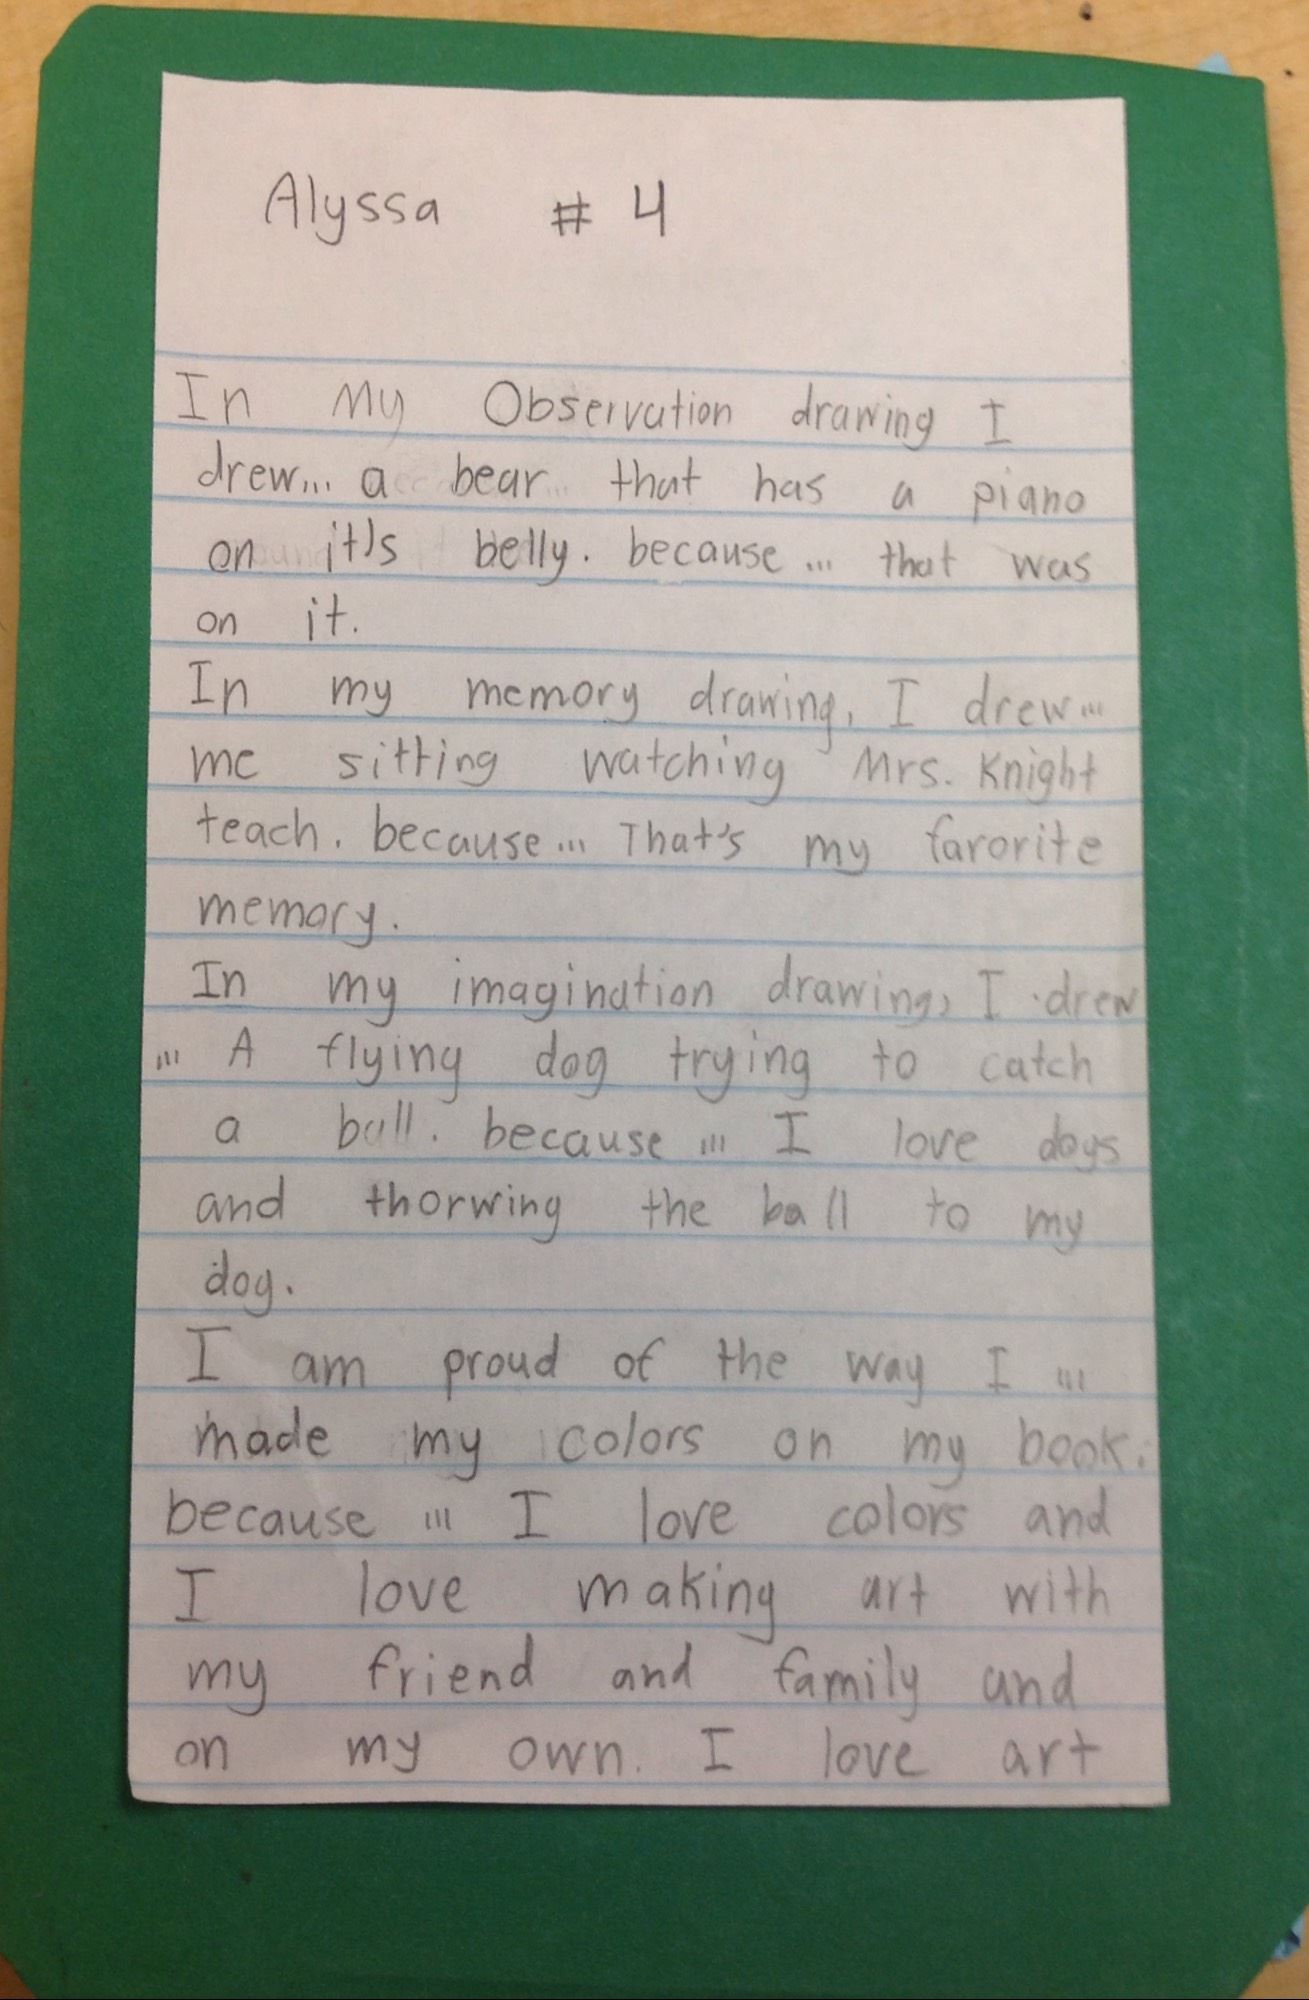 Alyssa # 4
In My Observation drawing I
drew... a bear that has a piano
on it's belly. because... that was
on it.
In my memory drawing, I drew...
me sitting watching Mrs. Knight
teach. because... That's my favorite
memory.
In my imagination drawing, I drew
... A flying dog trying to catch
a ball. because... I love dogs
and thorwing the ball to my
dog.
I am proud of the way I ...
made my colors on my book.
because ... I love colors and
I love making art with
my friend and family and
on my own. I love art